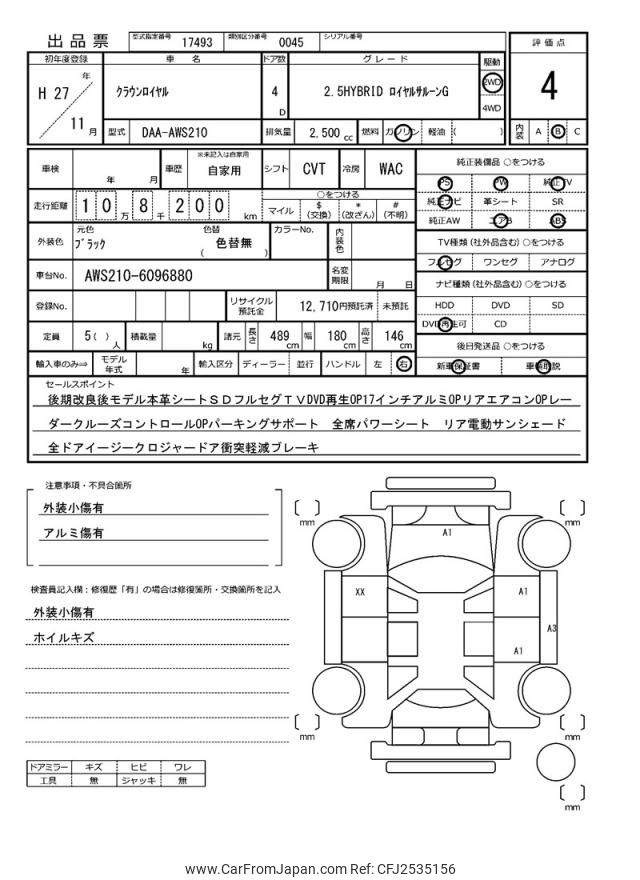 出品票 型式指定番号 17493 類別区分番号 0045 シリアル番号
初年度登録 車名 ドア数 グレード 駆動 評価点
H 27 年 11 月 クラウンロイヤル 4 D 2.5HYBRID ロイヤルサルーンG 2WD 4WD 4
型式 DAA-AWS210 排気量 2,500 cc 燃料 ガソリン 軽油 ( ) 内装 A B C
車検 年 月 車歴 ※未記入は自家用 自家用 シフト CVT 冷房 WAC
純正装備品 ○をつける
PS PW 純正TV
純正ナビ 革シート SR
純正AW エアB ABS
走行距離 10万 8千 200 km ○をつける
マイル $(交換) *(改ざん) #(不明)
外装色 元色 ブラック 色替 ( 色替無 ) カラーNo. 内装色
TV種類(社外品含む)○をつける
フルセグ ワンセグ アナログ
車台No. AWS210-6096880 名変期限 月 日
ナビ種類(社外品含む)○をつける
HDD DVD SD
DVD再生可 CD
登録No. リサイクル預託金 12,710円預託済 未預託
定員 5( )人 積載量 kg 諸元 長さ 489cm 幅 180cm 高さ 146cm
後日発送品 ○をつける
新車保証書 車輌取説
輸入車のみ⇒ モデル年式 年 輸入区分 ディーラー 並行 ハンドル 左 右
セールスポイント
後期改良後モデル本革シートSDフルセグTVDVD再生OP17インチアルミOPリアエアコンOPレー
ダークルーズコントロールOPパーキングサポート 全席パワーシート リア電動サンシェード
全ドアイージークロジャードア衝突軽減ブレーキ
注意事項・不具合箇所
外装小傷有
アルミ傷有
検査員記入欄：修復歴「有」の場合は修復箇所・交換箇所を記入
外装小傷有
ホイルキズ
ドアミラー キズ ヒビ ワレ
工具 無 ジャッキ 無
mm
mm
A1
XX
A1
A3
A1
mm
mm
mm
www.CarFromJapan.com Ref: CFJ2535156